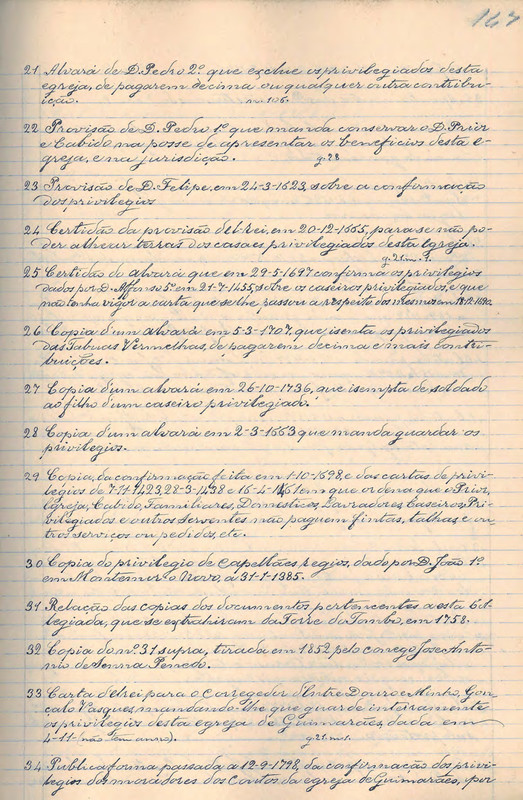 167
21 Alvará de D. Pedro 2º que exclue os privilegiados desta
egreja, de pagarem decima ou qualquer outra contribu-
ição. nº 106.
22 Provisão de D. Pedro 1º que manda conservar o D. Prior
e Cabido na posse de apresentar os beneficios desta e-
greja, e na jurisdição. g. 28
23 Provisão de D. Felipe, em 24-3-1623, sobre a confirmação
dos privilegios
24 Certidão da provisão del-rei, em 20-12-1665, para se não po-
der alhear terras dos casaes privilegiados desta Egreja.
g. 21. m. 1.
25 Certidão do alvará que em 29-5-1697 confirma os privilegios
dados por D. Affonso 5º em 21-7-1455, sobre os caseiros privilegiados, e que
não tenha vigor a carta que se lhe passou a respeito dos mesmos em 18-12-1690.
26 Copia d'um alvará em 5-3-1707, que isenta os privilegiados
das Tabuas Vermelhas, de pagarem decima e mais contri-
buições.
27 Copia d'um alvará em 26-10-1736, que isempta de soldado
ao filho d'um caseiro privilegiado.
28 Copia d'um alvará em 2-3-1663 que manda guardar os
privilegios.
29 Copia, da confirmação feita em 1-10-1698, e das cartas de privi-
legios de 7-11-1423, 28-3-1438 e 16-4-1461 em que ordena que o Prior,
Egreja, Cabido, Familiares, Domesticos, Lavradores, Caseiros, Pri-
vilegiados e outros Serventes não paguem fintas, talhas e ou-
tros serviços ou pedidos, etc.
30 Copia do privilegio de Capellães regios, dado por D. João 1º
em Montemor o Novo, a 31-1-1385.
31 Relação das copias dos documentos pertencentes a esta Col-
legiada, que se extrahiram da Torre do Tombo, em 1758.
32 Copia do nº 31 supra, tirada em 1852 pelo conego José Anto-
nio de Senna Penedo.
33 Carta d'elrei para o Corregedor d'Entre Douro e Minho, Gon-
çalo Vasques, mandando-lhe que guarde inteiramente
os privilegios desta egreja de Guimarães, dada em
4-11-(não tem anno). g. 21. m. 1.
34 Publica forma passada a 12-9-1798, da confirmação dos privi-
legios dos moradores dos Contos da egreja de Guimarães, por